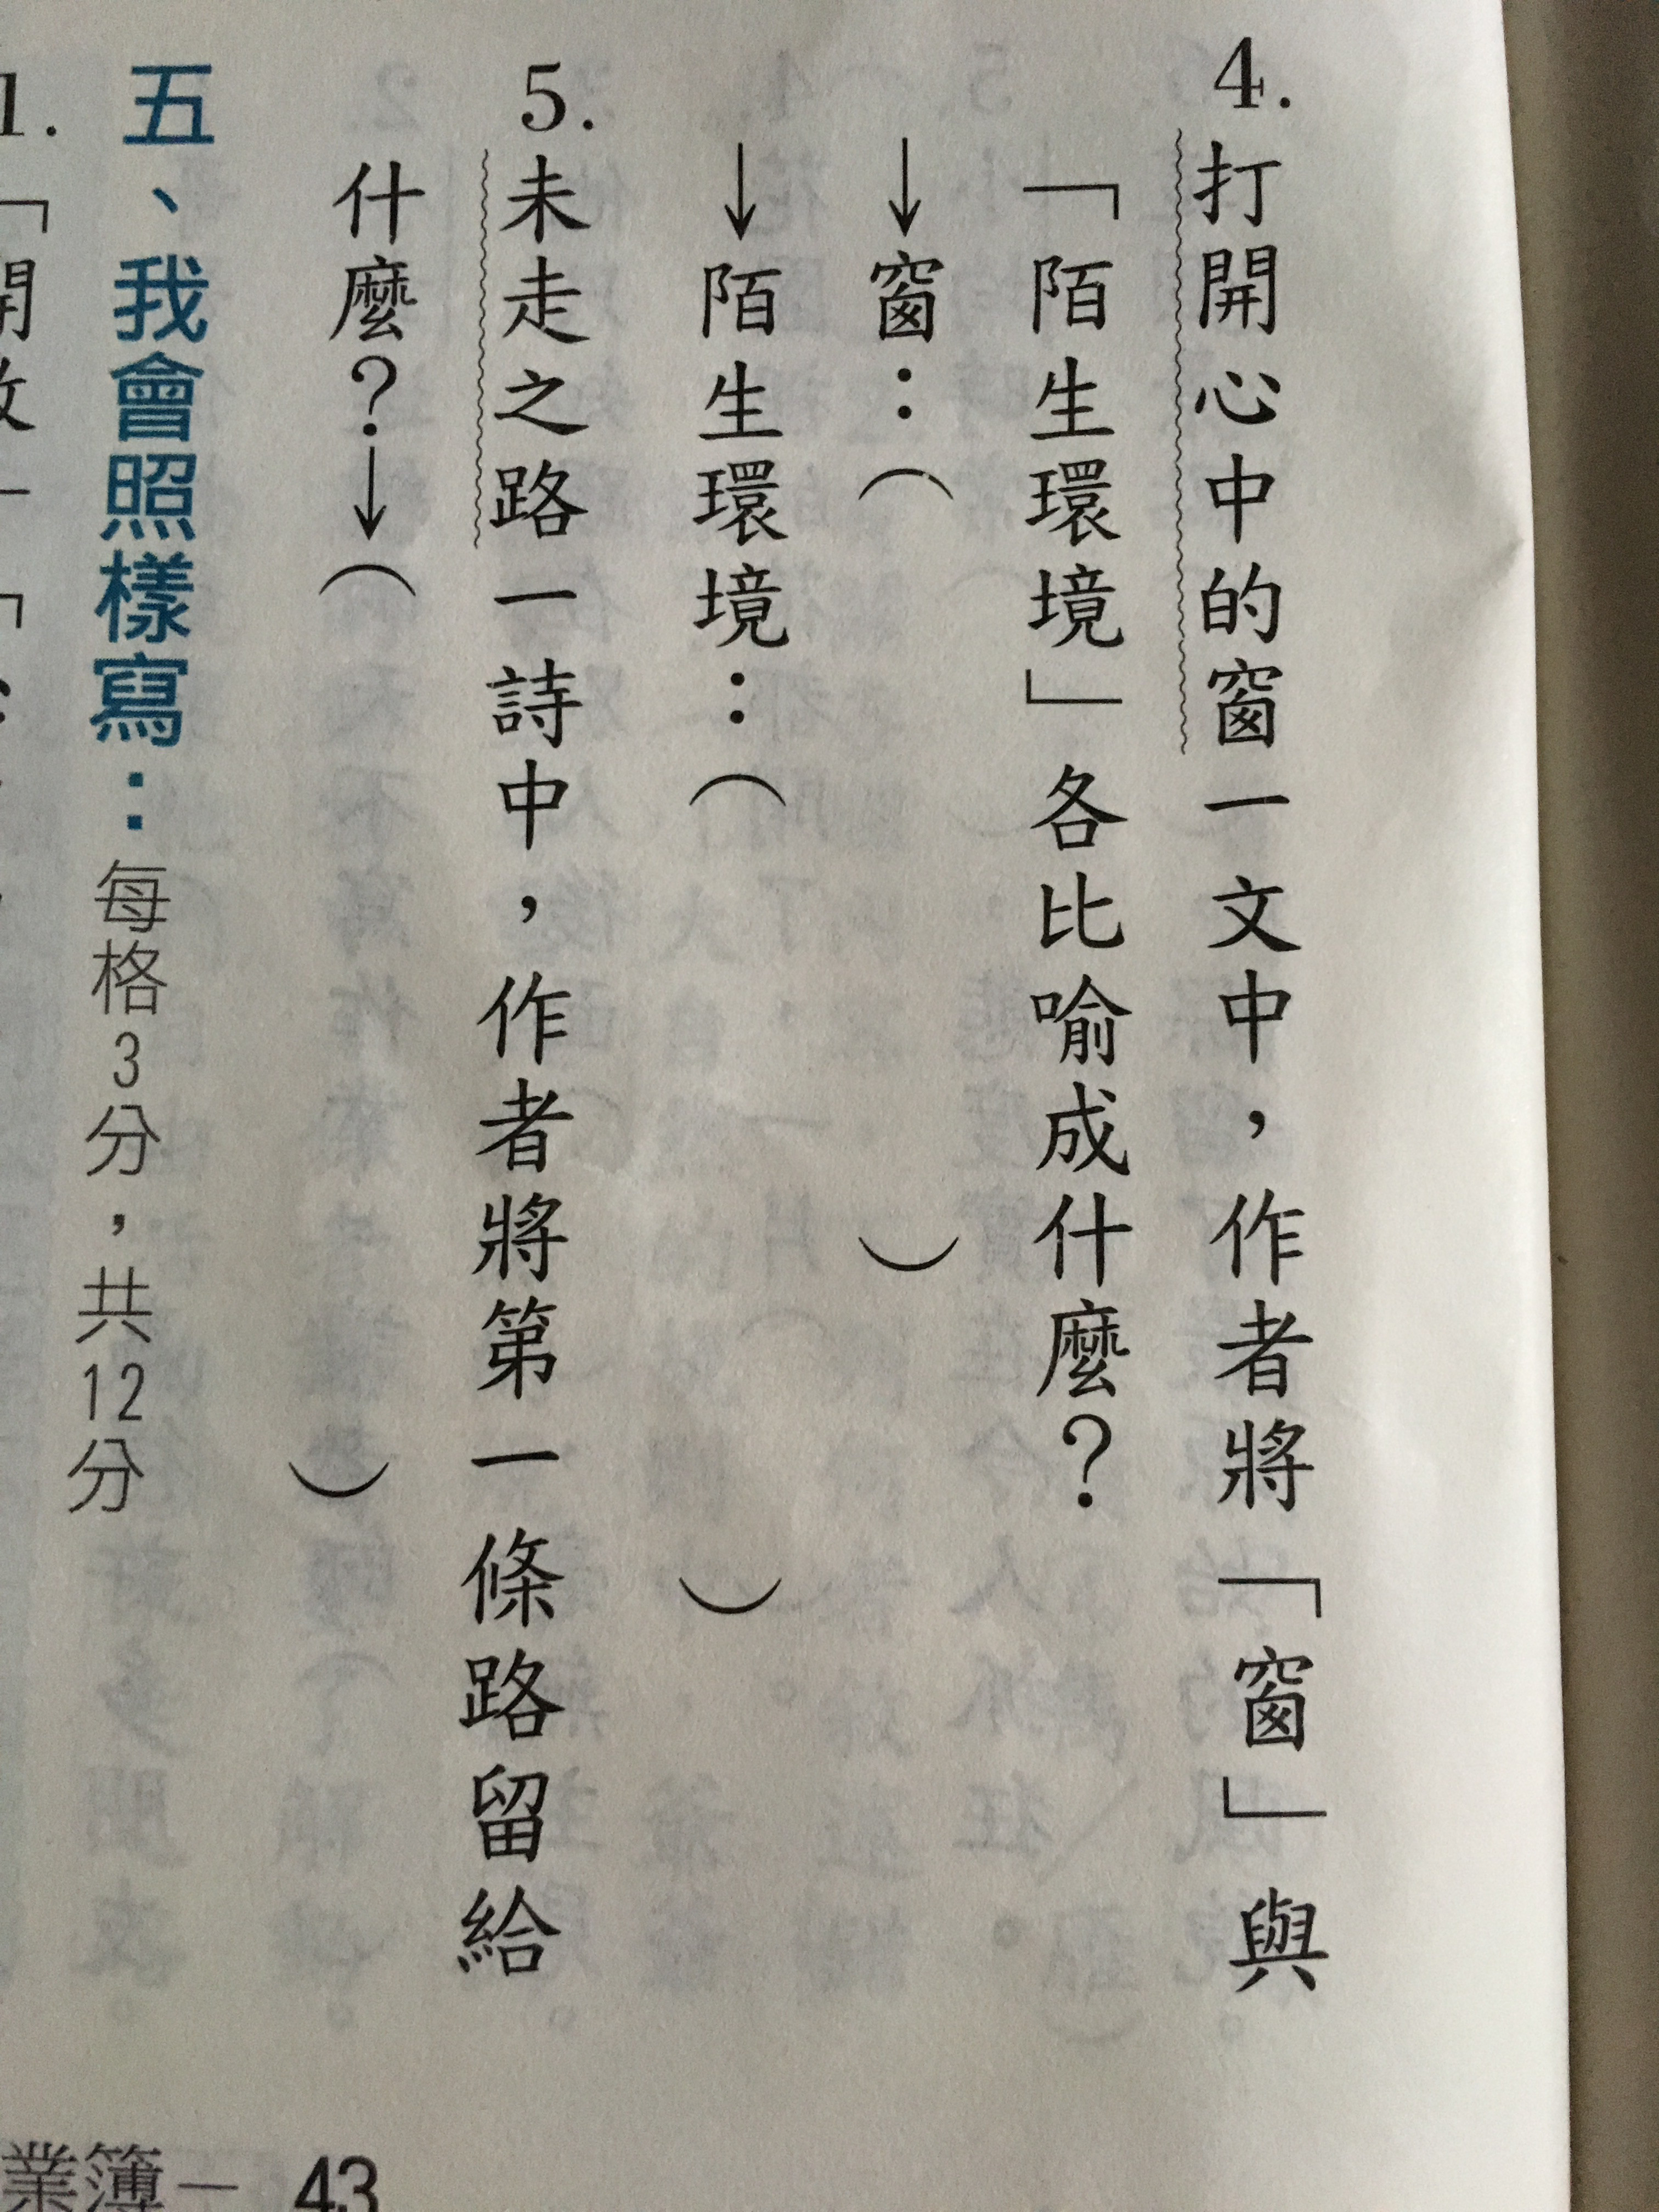 4.打開心中的窗一文中，作者將「窗」與
「陌生環境」各比喻成什麼？
→窗：（　　　）
→陌生環境：（　　　）
5.未走之路一詩中，作者將第一條路留給
什麼？→（　　　）
五、我會照樣寫：每格3分，共12分
1.「開
業簿－ 43